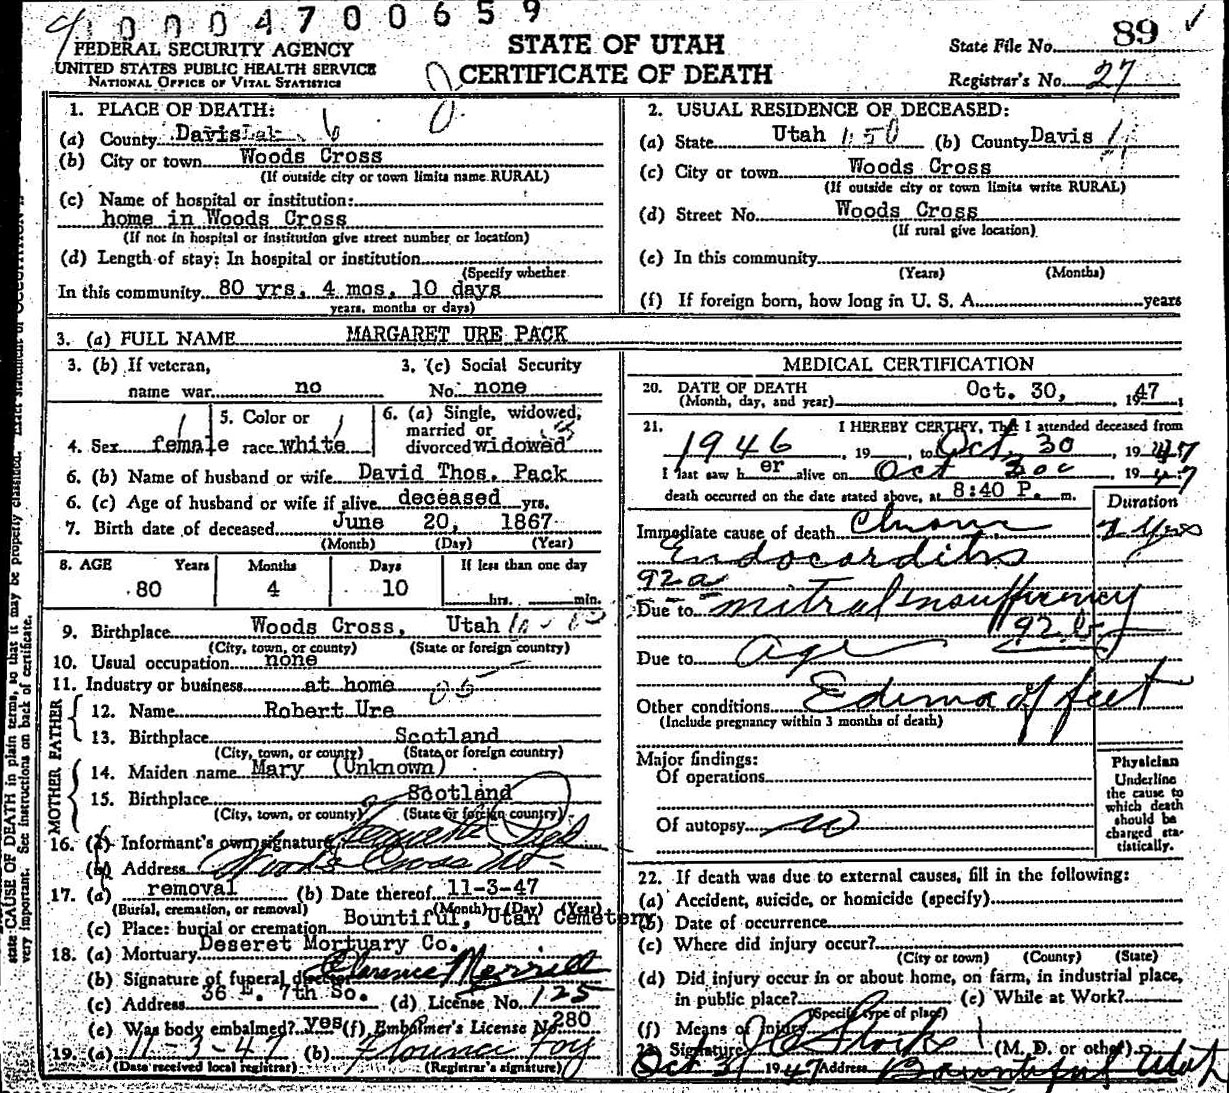 0004700659
FEDERAL SECURITY AGENCY
UNITED STATES PUBLIC HEALTH SERVICE
NATIONAL OFFICE OF VITAL STATISTICS
STATE OF UTAH
CERTIFICATE OF DEATH
State File No. 89
Registrar's No. 27
1. PLACE OF DEATH:
(a) County Davis
(b) City or town Woods Cross
(If outside city or town limits name RURAL)
(c) Name of hospital or institution:
home in Woods Cross
(If not in hospital or institution give street number or location)
(d) Length of stay: In hospital or institution
(Specify whether
In this community 80 yrs. 4 mos. 10 days
years, months or days)
2. USUAL RESIDENCE OF DECEASED:
(a) State Utah (b) County Davis
(c) City or town Woods Cross
(If outside city or town limits write RURAL)
(d) Street No. Woods Cross
(If rural give location)
(e) In this community
(Years) (Months)
(f) If foreign born, how long in U. S. A. years
3. (a) FULL NAME MARGARET URE PACK
3. (b) If veteran, 3. (c) Social Security
name war no No. none
4. Sex female 5. Color or race white 6. (a) Single, widowed, married or divorced widowed
6. (b) Name of husband or wife David Thos. Pack
6. (c) Age of husband or wife if alive deceased yrs.
7. Birth date of deceased June 20, 1867
(Month) (Day) (Year)
8. AGE Years Months Days If less than one day
80 4 10 hrs. min.
9. Birthplace Woods Cross, Utah
(City, town, or county) (State or foreign country)
10. Usual occupation none
11. Industry or business at home
FATHER
12. Name Robert Ure
13. Birthplace Scotland
(City, town, or county) (State or foreign country)
MOTHER
14. Maiden name Mary (Unknown)
15. Birthplace Scotland
(City, town, or county) (State or foreign country)
16. (a) Informant's own signature
(b) Address Woods Cross Ut
17. (a) removal (b) Date thereof 11-3-47
(Burial, cremation, or removal) (Month) (Day) (Year)
(c) Place: burial or cremation Bountiful, Utah Cemetery
18. (a) Mortuary Deseret Mortuary Co.
(b) Signature of funeral director Clarence Merrill
(c) Address 36 E. 7th So. (d) License No. 125
(e) Was body embalmed? yes (f) Embalmer's License No. 280
19. (a) 11-3-47 (b) Florence Foy
(Date received local registrar) (Registrar's signature)
MEDICAL CERTIFICATION
20. DATE OF DEATH Oct. 30, 1947
(Month, day, and year)
21. I HEREBY CERTIFY, That I attended deceased from
1946, 19 , to Oct 30, 1947
I last saw her alive on Oct 30, 1947
death occurred on the date stated above, at 8:40 P. m.
Duration
Immediate cause of death Chronic
Endocarditis
92a
Due to mitral insufficiency
92b
Due to age
Other conditions Edima of feet
(Include pregnancy within 3 months of death)
Major findings:
Of operations
Of autopsy no
Physician
Underline
the cause to
which death
should be
charged sta-
tistically.
22. If death was due to external causes, fill in the following:
(a) Accident, suicide, or homicide (specify)
(b) Date of occurrence
(c) Where did injury occur?
(City or town) (County) (State)
(d) Did injury occur in or about home, on farm, in industrial place,
in public place? (e) While at Work?
(Specify type of place)
(f) Means of injury
23. Signature (M. D. or other)
Oct 31 1947 Address Bountiful Utah
state CAUSE OF DEATH in plain terms, so that it may be properly classified.
very important. See instructions on back of certificate.